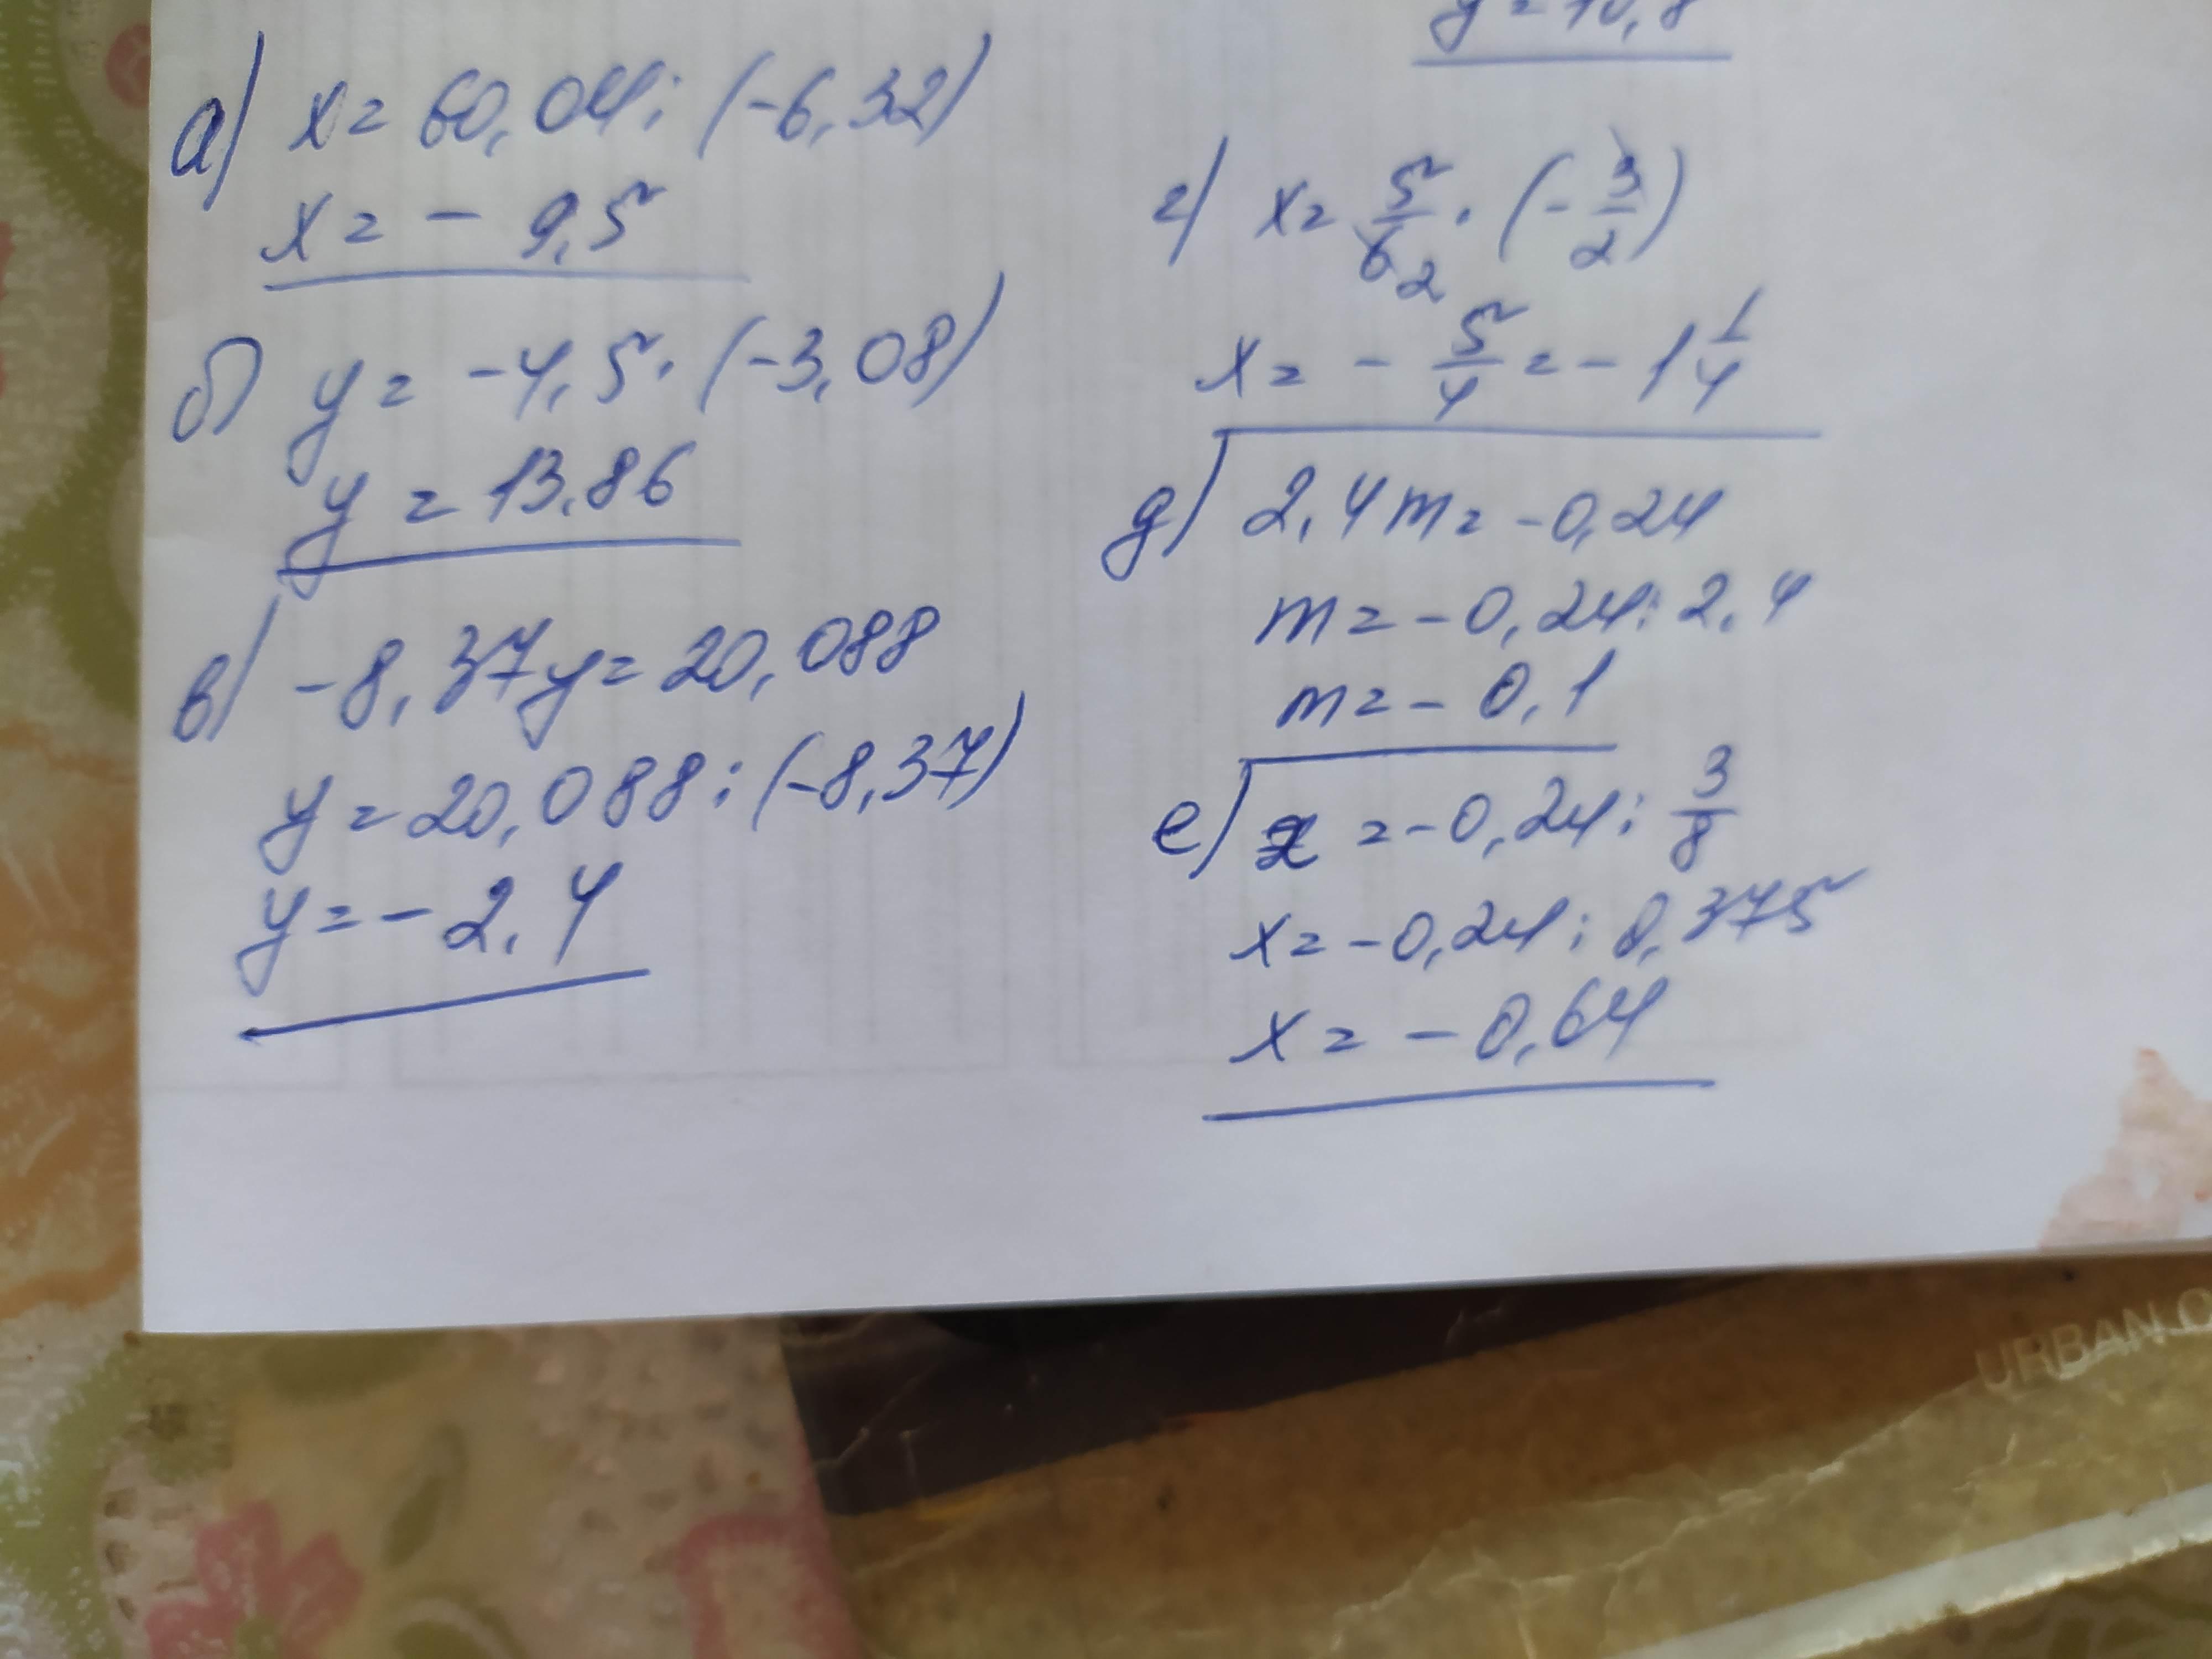 y = 10,8
а) x = 60,04 : (-6,32)
x = - 9,5
б) y = -4,5 · (-3,08)
y = 13.86
в) -8,37y = 20,088
y = 20,088 : (-8,37)
y = - 2,4
г) x = 5/6 2 · (- 3/2)
x = - 5/4 = - 1 1/4
д) 2,4m = -0,24
m = -0,24 : 2,4
m = - 0,1
е) x = -0,24 : 3/8
x = -0,24 : 0,375
x = - 0,64
URBAN